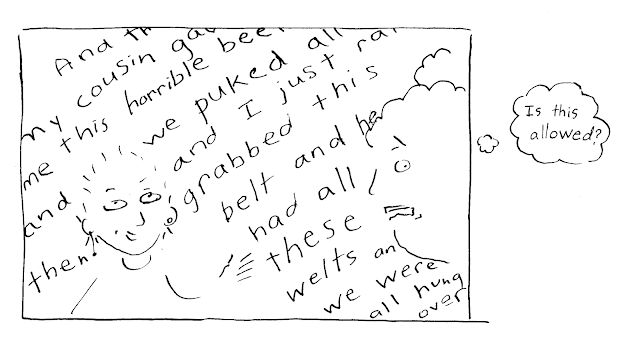 And th
my cousin gav
me this horrible beer
and we puked all
then and I just ran
grabbed this
belt and he
had all
these
welts an
we were
all hung
over
Is this
allowed?